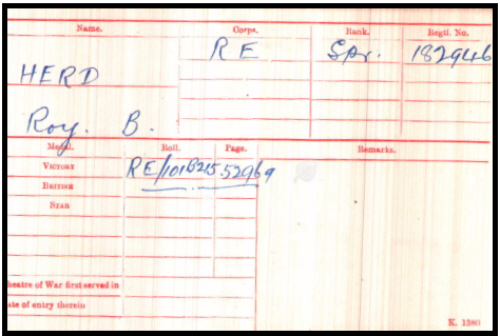 Name. Corps. Rank. Regtl. No.
R E Spr. 182946
HERD
Roy. B.
Medal. Roll. Page. Remarks.
VICTORY RE/101B215 52969
BRITISH
STAR
heatre of War first served in
ate of entry therein
K. 1380